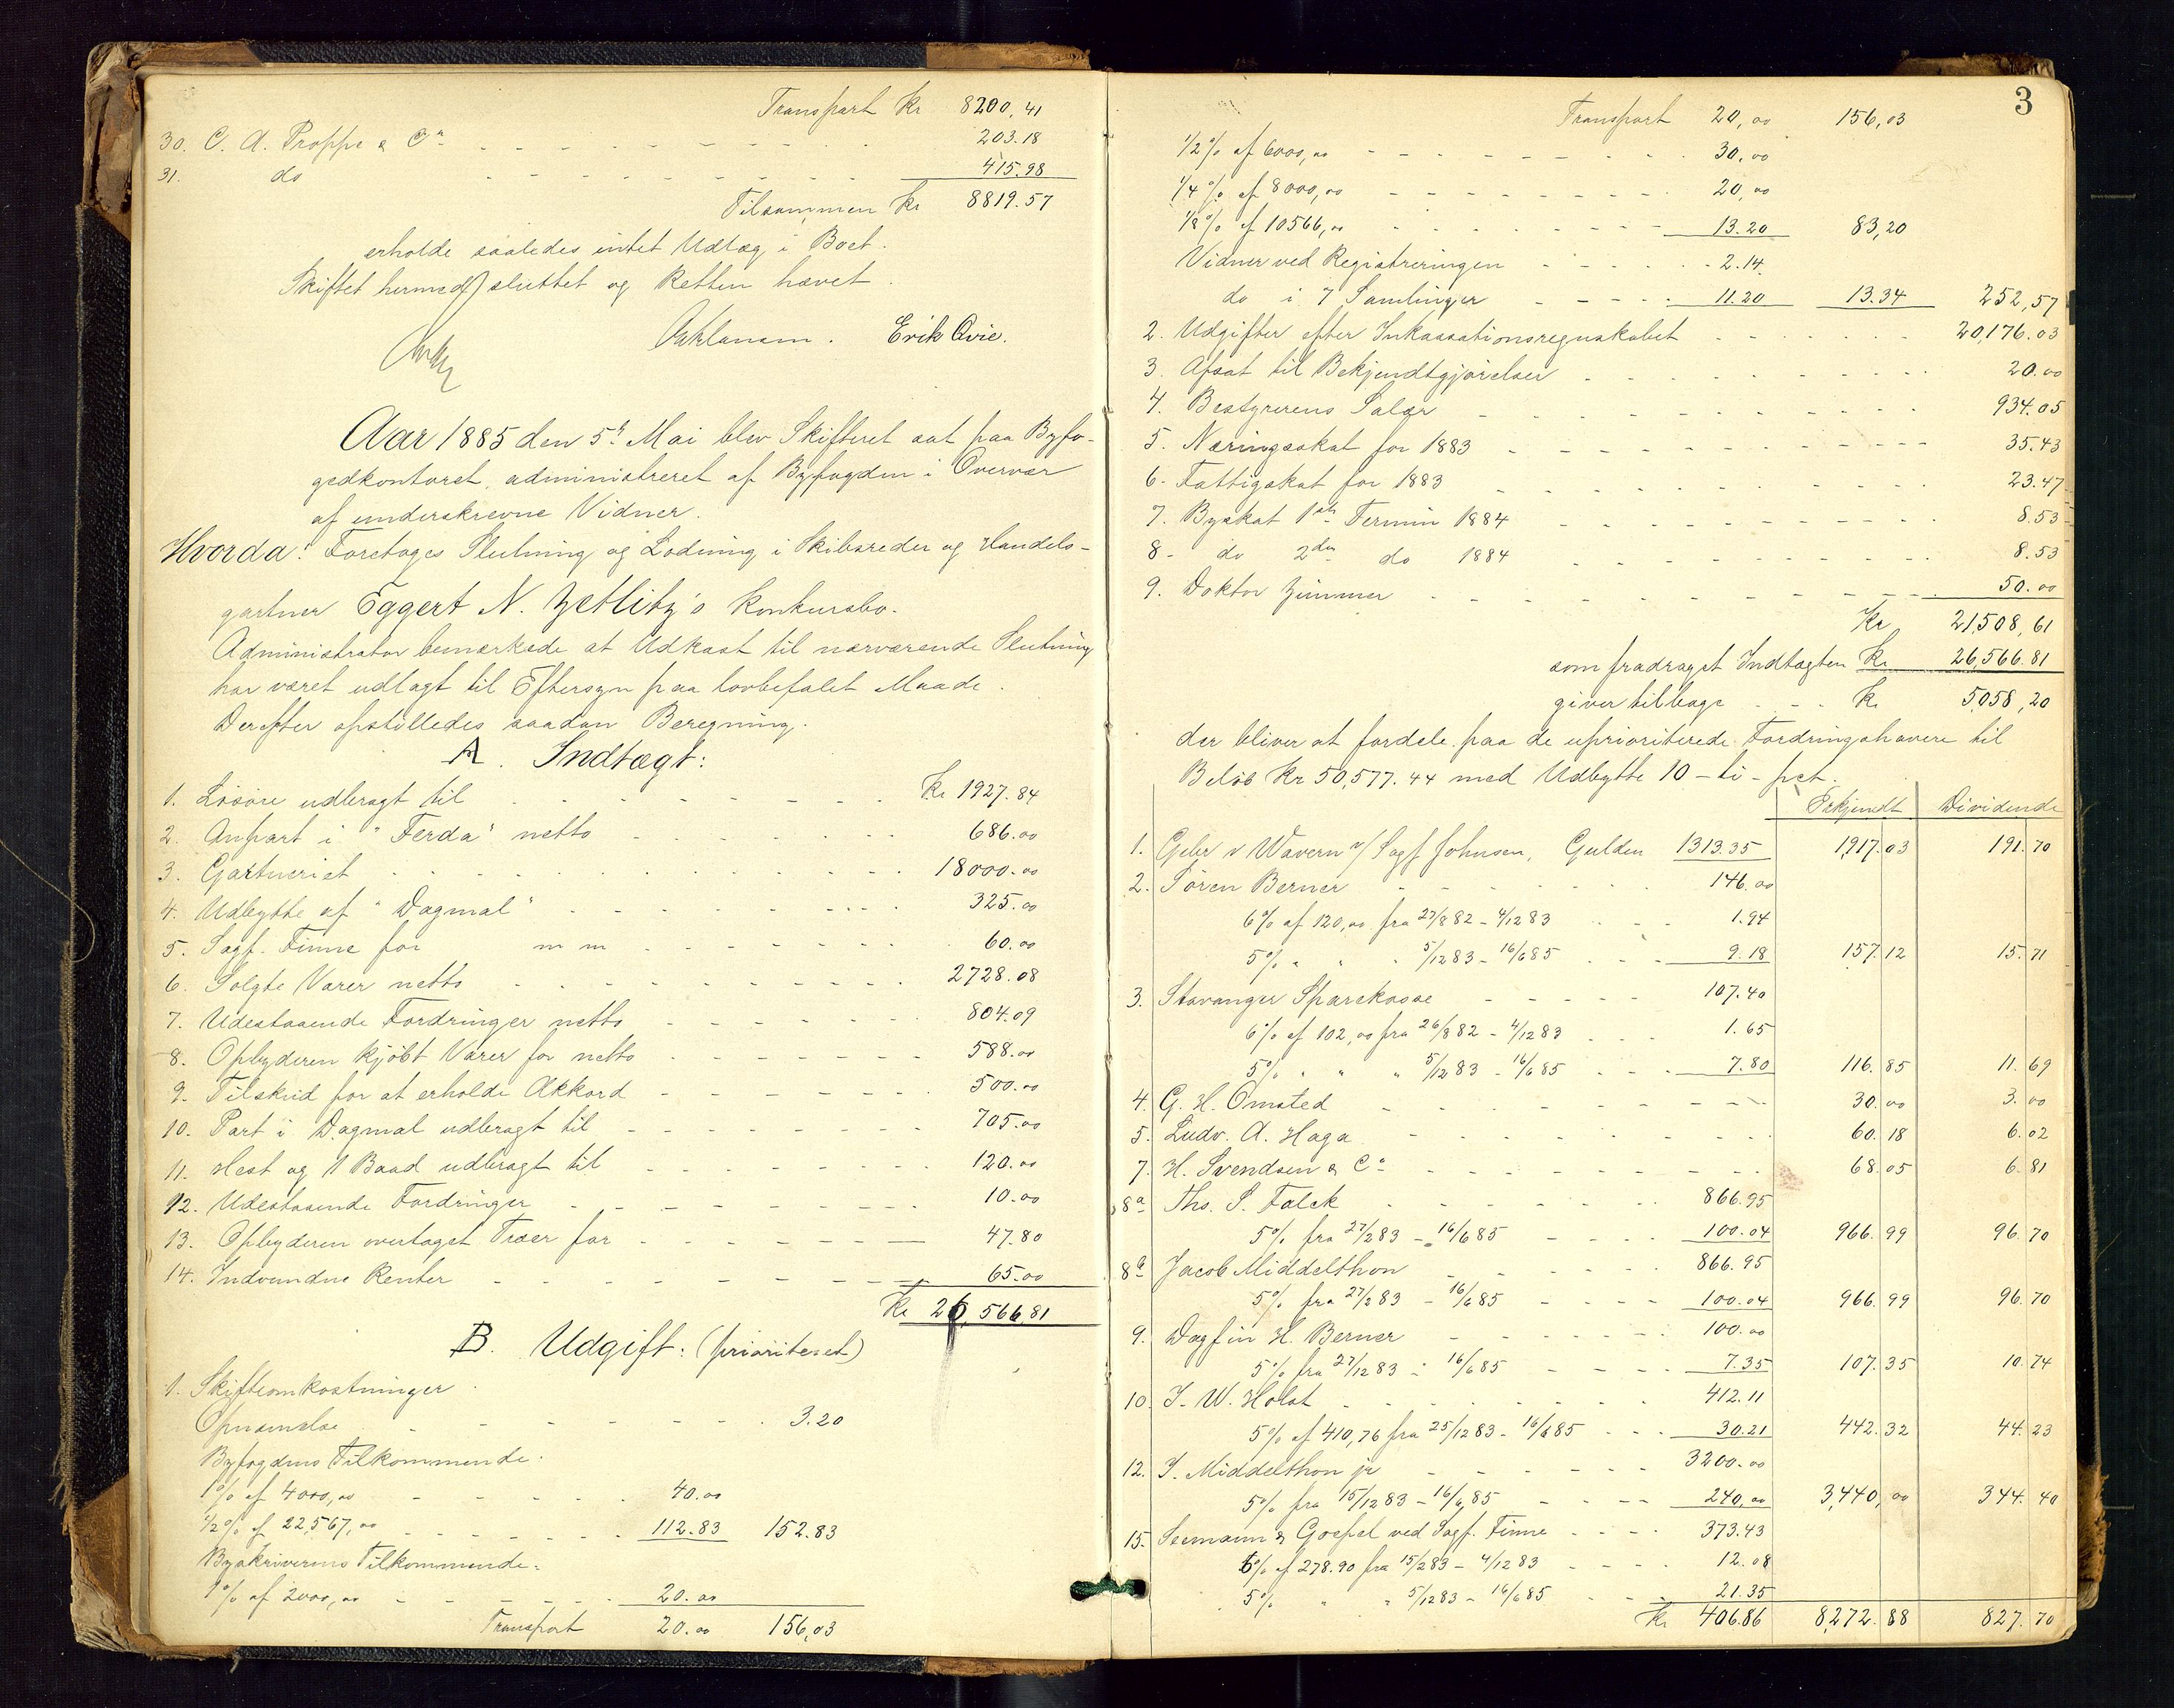 Transport Kr 8200,41
30. C. A. Proppe & Co 203.18
31. do 415.98
Tilsammen Kr 8819.57
erholde saaledes intet Udlæg i Boet.
Skiftet hermed sluttet og Retten hævet.
Erik Qvie.
Aar 1885 den 5te Mai blev Skifteret sat paa Byfo-
gedkontoret, administreret af Byfogden i Overvær
af underskrevne Vidner.
Hvorda: Foretoges Slutning og Lodning i Skibsreder og Handels-
gartner Eggert N. Zetlitz's Konkursbo.
Administrator bemærkede at Udkast til nærværende Slutning
har været udlagt til Eftersyn paa lovbefalet Maade.
Derefter opstilledes saadan Beregning.
A. Indtægt:
1. Løsøre udbragt til Kr 1927.84
2. Anpart i "Ferda" netto 686.00
3. Gartneriet 18000.00
4. Udbytte af "Dagmal" 325.00
5. Sagf. Finne for m m 60.00
6. Solgte Varer netto 2728.08
7. Udestaaende Fordringer netto 804.09
8. Opbyderen kjøbt Varer for netto 588.00
9. Tilskud for at erholde Akkord 500.00
10. Part i Dagmal udbragt til 705.00
11. Hest og 1 Baad udbragt til 120.00
12. Udestaaende Fordringer 10.00
13. Opbyderen overtaget Træer for 47.80
14. Indvundne Renter 65.00
Kr 26,566,81
B. Udgift: (prioriteret)
1. Skifteomkostninger
Opnævnelse 3.20
Byfogdens Tilkommende:
1% af 4000,00 40.00
1/2% af 22,567,00 112.83 152.83
Byskriverens Tilkommende:
1% af 2000,00 20.00
Transport 20.00 156,03
3
Transport 20,00 156,03
1/2% af 6000,00 30,00
1/4% af 8000,00 20,00
1/8% af 10566,00 13.20 83,20
Vidner ved Registreringen 2.14
do i 7 Samlinger 11.20 13.34 252,57
2. Udgifter efter Inkassationsregnskabet 20,176.03
3. Afsat til Bekjendtgjørelser 20.00
4. Bestyrerens Salær 934.05
5. Næringsskat for 1883 35.43
6. Fattigskat for 1883 23.47
7. Byskat 1ste Termin 1884 8.53
8. do 2den do 1884 8.53
9. Doktor Zimmer 50.00
Kr 21,508,61
som fradraget Indtægten Kr 26,566.81
giver tilbage Kr 5,058,20
der bliver at fordele paa de uprioriterede Fordringshavere til
Beløb Kr 50,577.44 med Udbytte 10 - ti - pct.
Erkjendt Dividende
1. Gebr v Wavern v/ Sagf Johnsen, Gulden 1313.35 1,917.03 191.70
2. Søren Berner 146.00
6% af 120,00 fra 27/8 82 - 4/12 83 1.94
5% " " " 5/12 83 - 16/6 85 9.18 157.12 15.71
3. Stavanger Sparekasse 107.40
6% af 102,00 fra 26/8 82 - 4/12 83 1.65
5% " " " 5/12 83 - 16/6 85 7.80 116.85 11.69
4. G. H. Omsted 30.00 3.00
5. Ludv. A. Haga 60.18 6.02
7. H. Svendsen & Co 68.05 6.81
8a Ths. S. Falck 866.95
5% fra 27/2 83 - 16/6 85 100.04 966.99 96.70
8b Jacob Middelthon 866.95
5% fra 27/2 83 - 16/6 85 100.04 966.99 96.70
9. Dagfin H. Berner 100.00
5% fra 27/12 83 - 16/6 85 7.35 107.35 10.74
10. I. W. Holst 412.11
5% af 410,76 fra 25/12 83 - 16/6 85 30.21 442.32 44.23
12. I. Middelthon jr 3200.00
5% fra 15/12 83 - 16/6 85 240,00 3,440,00 344.40
15. Seemann & Goepel ved Sagf. Finne 373.43
6% af 278.90 fra 15/2 83 - 4/12 83 12.08
5% " " 5/12 83 - 16/6 85 21.35
Kr 406.86 8,272.88 827.70